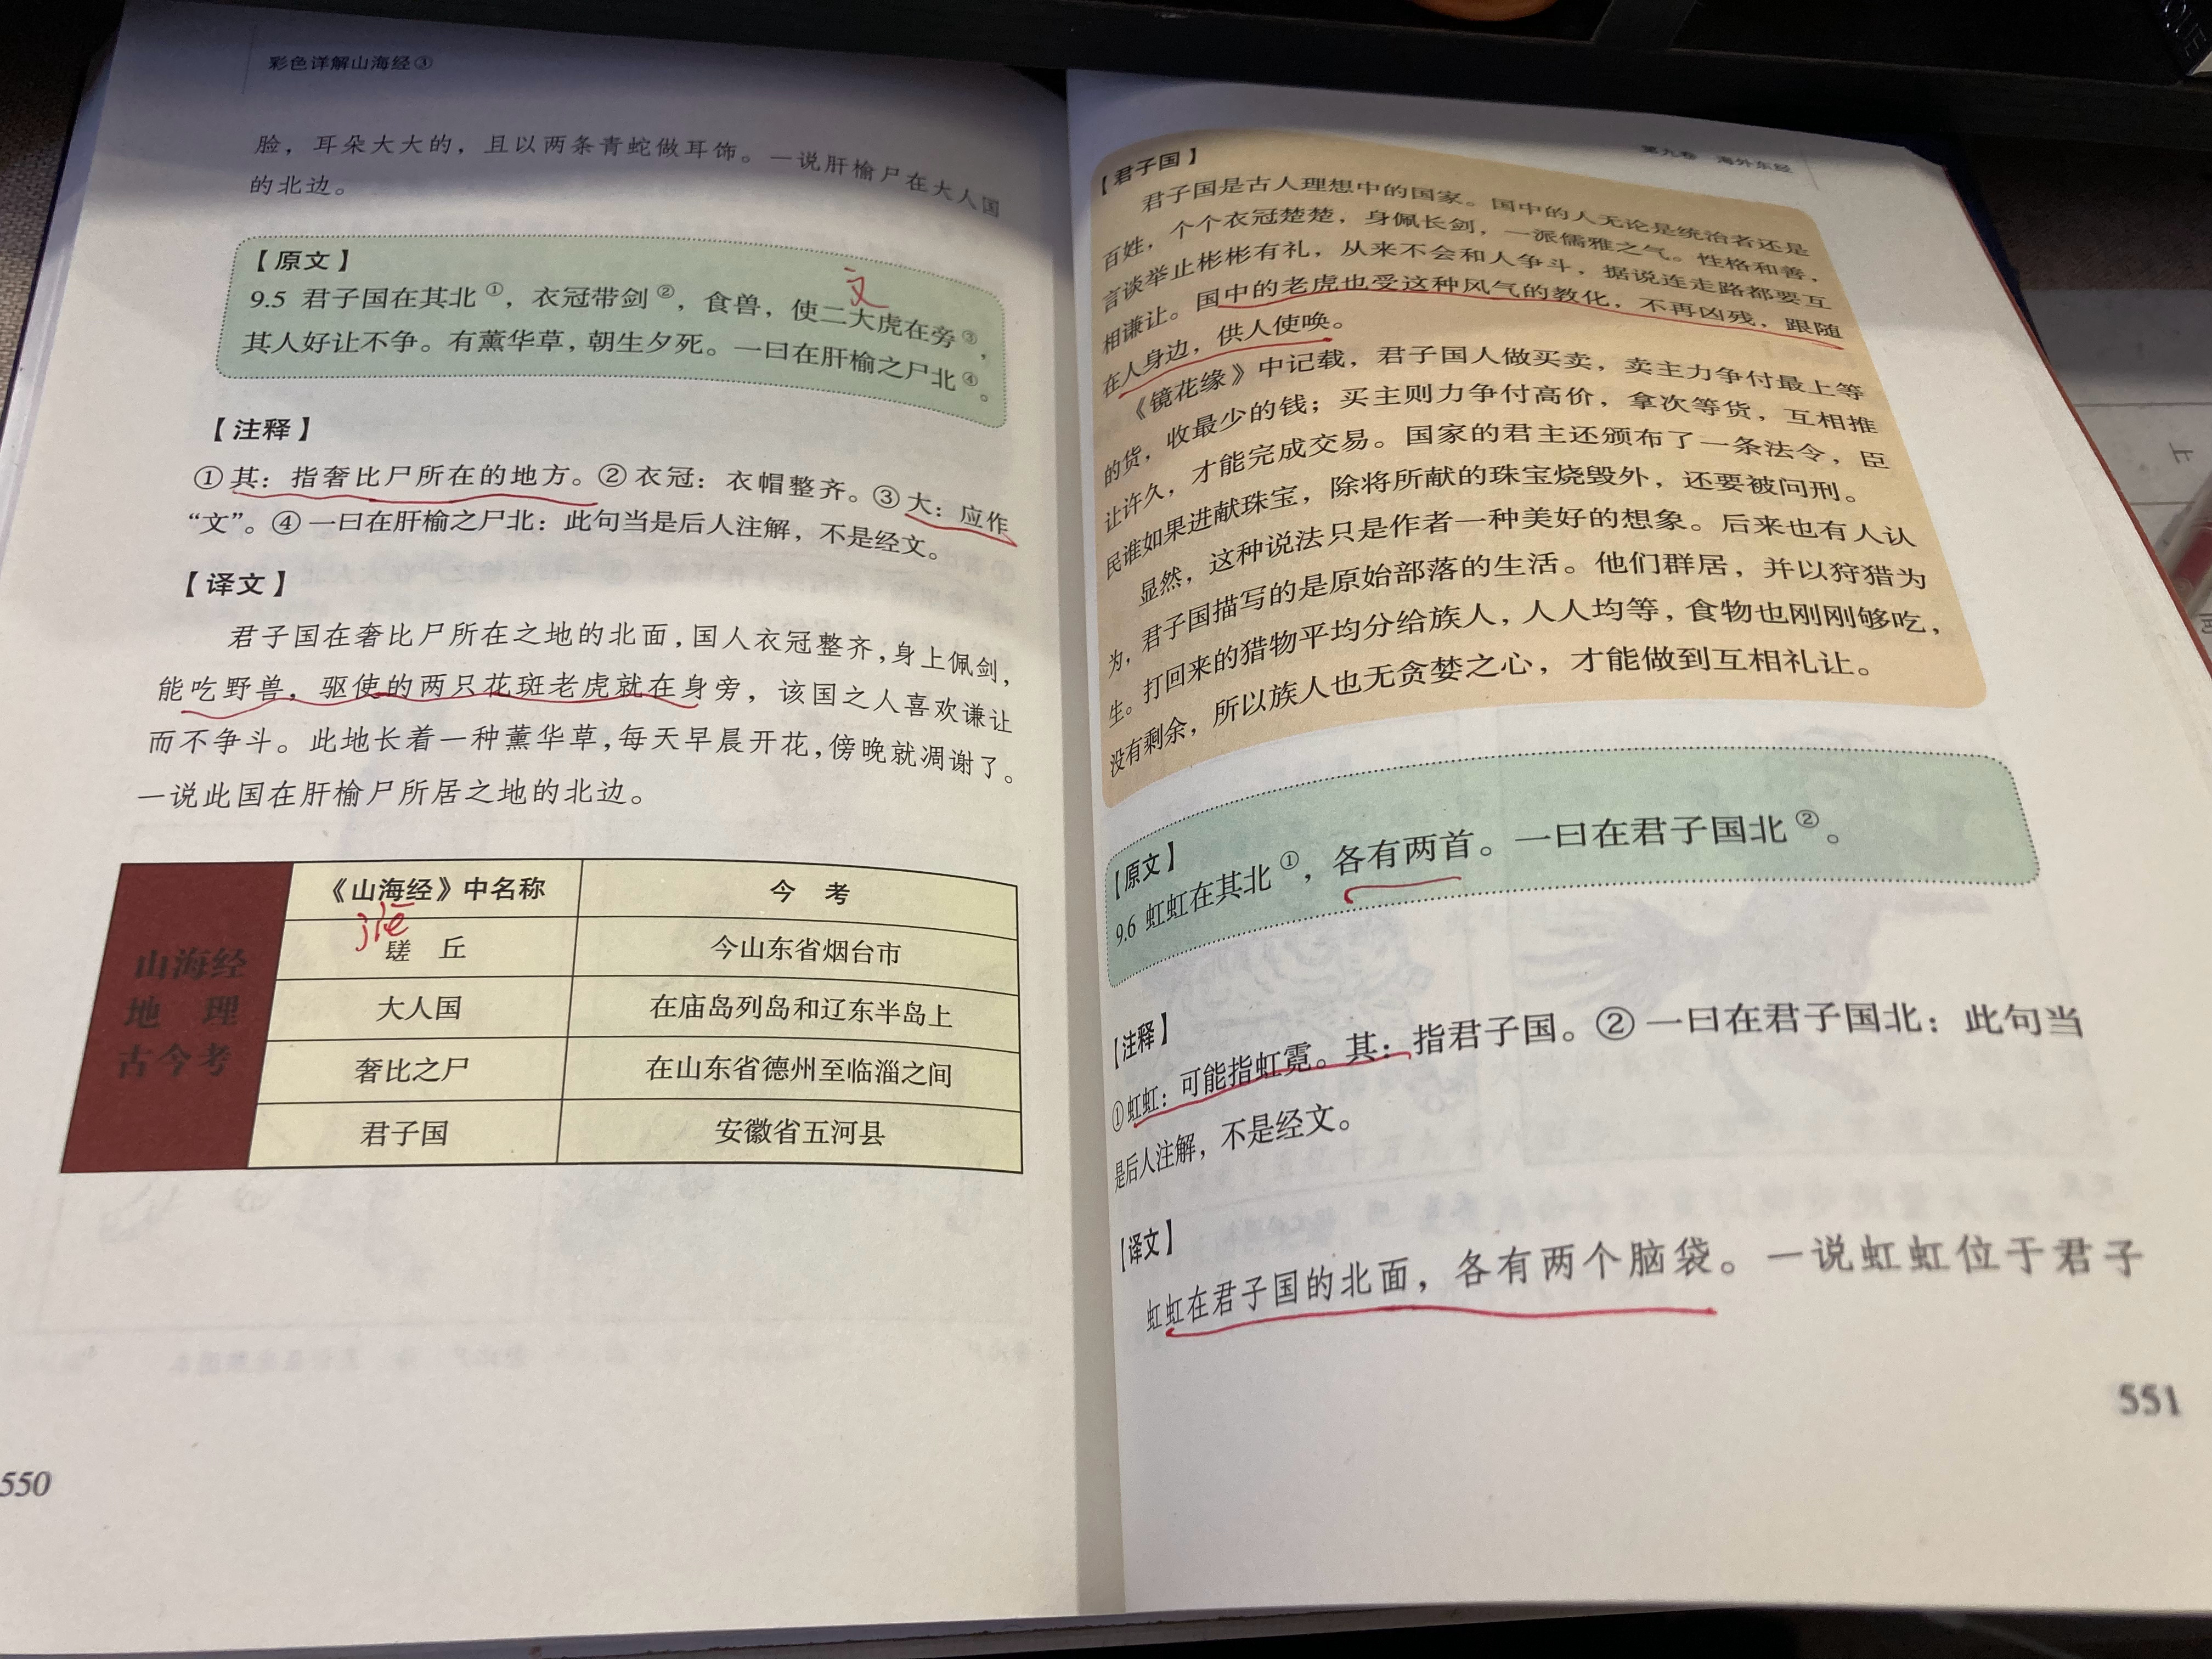 彩色详解山海经③
脸，耳朵大大的，且以两条青蛇做耳饰。一说肝榆尸在大人国
的北边。
【原文】
文
9.5 君子国在其北①，衣冠带剑②，食兽，使二大虎在旁③，
其人好让不争。有薰华草，朝生夕死。一曰在肝榆之尸北④。
【注释】
①其：指奢比尸所在的地方。②衣冠：衣帽整齐。③大：应作
“文”。④一曰在肝榆之尸北：此句当是后人注解，不是经文。
【译文】
君子国在奢比尸所在之地的北面，国人衣冠整齐，身上佩剑，
能吃野兽，驱使的两只花斑老虎就在身旁，该国之人喜欢谦让
而不争斗。此地长着一种薰华草，每天早晨开花，傍晚就凋谢了。
一说此国在肝榆尸所居之地的北边。
山海经
地 理
古今考
《山海经》中名称 今 考
jiē
䃬 丘 今山东省烟台市
大人国 在庙岛列岛和辽东半岛上
奢比之尸 在山东省德州至临淄之间
君子国 安徽省五河县
550
第九卷 海外东经
【君子国】
君子国是古人理想中的国家。国中的人无论是统治者还是
百姓，个个衣冠楚楚，身佩长剑，一派儒雅之气。性格和善，
言谈举止彬彬有礼，从来不会和人争斗，据说连走路都要互
相谦让。国中的老虎也受这种风气的教化，不再凶残，跟随
在人身边，供人使唤。
《镜花缘》中记载，君子国人做买卖，卖主力争付最上等
的货，收最少的钱；买主则力争付高价，拿次等货，互相推
让许久，才能完成交易。国家的君主还颁布了一条法令，臣
民谁如果进献珠宝，除将所献的珠宝烧毁外，还要被问刑。
显然，这种说法只是作者一种美好的想象。后来也有人认
为，君子国描写的是原始部落的生活。他们群居，并以狩猎为
生。打回来的猎物平均分给族人，人人均等，食物也刚刚够吃，
没有剩余，所以族人也无贪婪之心，才能做到互相礼让。
【原文】
9.6 虹虹在其北①，各有两首。一曰在君子国北②。
【注释】
①虹虹：可能指虹霓。其：指君子国。②一曰在君子国北：此句当
是后人注解，不是经文。
【译文】
虹虹在君子国的北面，各有两个脑袋。一说虹虹位于君子
551